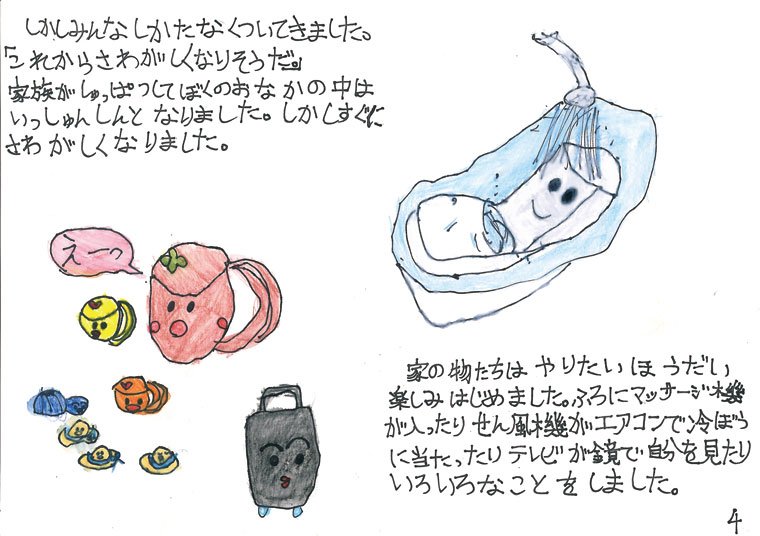 しかしみんなしかたなくついてきました。
「これからさわがしくなりそうだ。」
家族がしゅっぱつしてぼくのおなかの中は
いっしゅんしんとなりました。しかしすぐに
さわがしくなりました。
えーっ
家の物たちはやりたいほうだい
楽しみはじめました。ふろにマッサージ機
が入ったりせん風機がエアコンで冷ぼう
に当たったりテレビが鏡で自分を見たり
いろいろなことをしました。
4